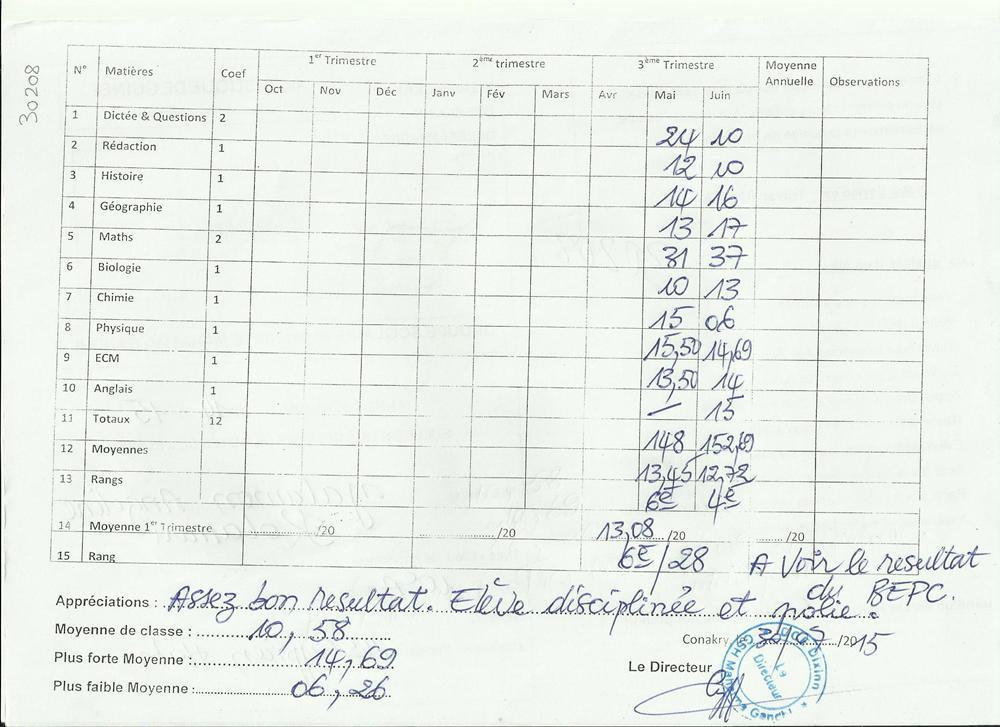 30208
N° Matières Coef 1er Trimestre 2ème trimestre 3ème Trimestre Moyenne Annuelle Observations
Oct Nov Déc Janv Fév Mars Avr Mai Juin
1 Dictée & Questions 2 24 10
2 Rédaction 1 12 10
3 Histoire 1 14 16
4 Géographie 1 13 17
5 Maths 2 31 37
6 Biologie 1 10 13
7 Chimie 1 15 06
8 Physique 1 15,50 14,69
9 ECM 1 13,50 14
10 Anglais 1 — 15
11 Totaux 12 148 152,69
12 Moyennes 13,45 12,72
13 Rangs 6e 4e
14 Moyenne 1er Trimestre ............/20 ............/20 13,08 ......../20 ......../20
15 Rang 6e/28 A Voir le resultat
du BEPC.
Appréciations : Assez bon resultat. Elève disciplinée et polie.
Moyenne de classe : 10,58
Conakry, le 30/7/2015
Plus forte Moyenne : 14,69
Le Directeur
Plus faible Moyenne : 06,26
Le Directeur